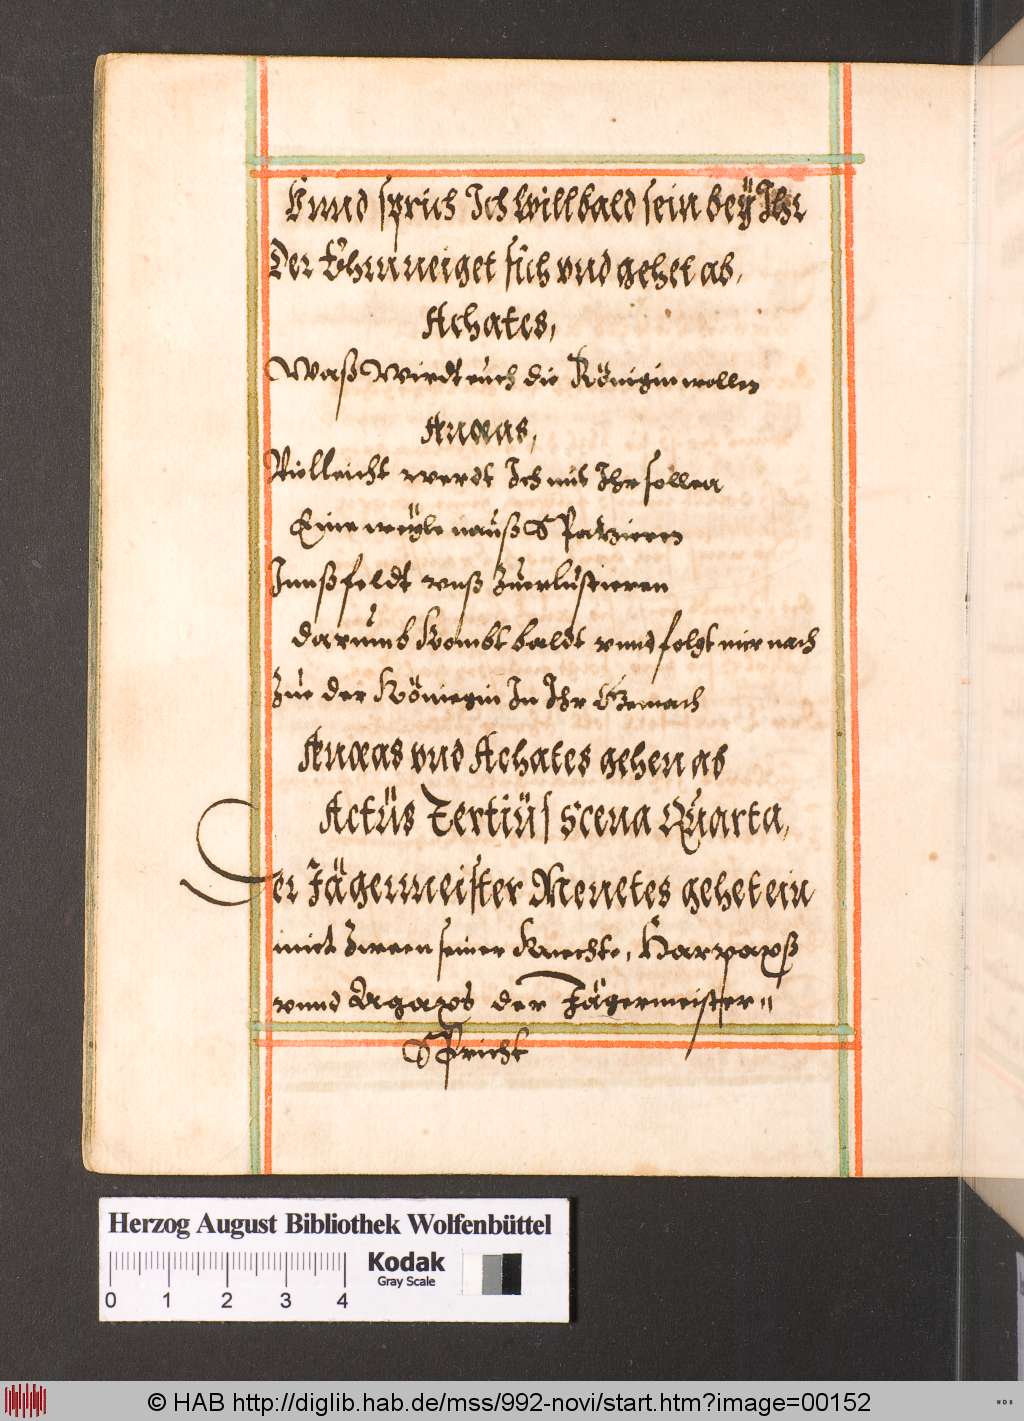 Vnnd sprich Ich will bald sein bey Ihr
Der Ehrn neiget sich vnd gehet ab,
Achates,
Waß Wirdt euch die Königin wollen
Anæas,
Villeicht werdt Ich mit Ihr sollen
Eine weÿle nauß SPatzieren
Innß feldt vnß Zuerlustieren
darumb Kombt baldt vnnd folgt mir nach
Zue der Köniegin In Ihr Gemach
Anæas vnd Achates gehen ab
Actüs Tertiüs Scena Quarta,
Der Jägermeister Menetes gehet ein
mitt Zween seiner Knechte, Harpaxß
vnnd Agaxs der Jägermeister"
SPricht
Herzog August Bibliothek Wolfenbüttel
Kodak
Gray Scale
0 1 2 3 4
© HAB http://diglib.hab.de/mss/992-novi/start.htm?image=00152